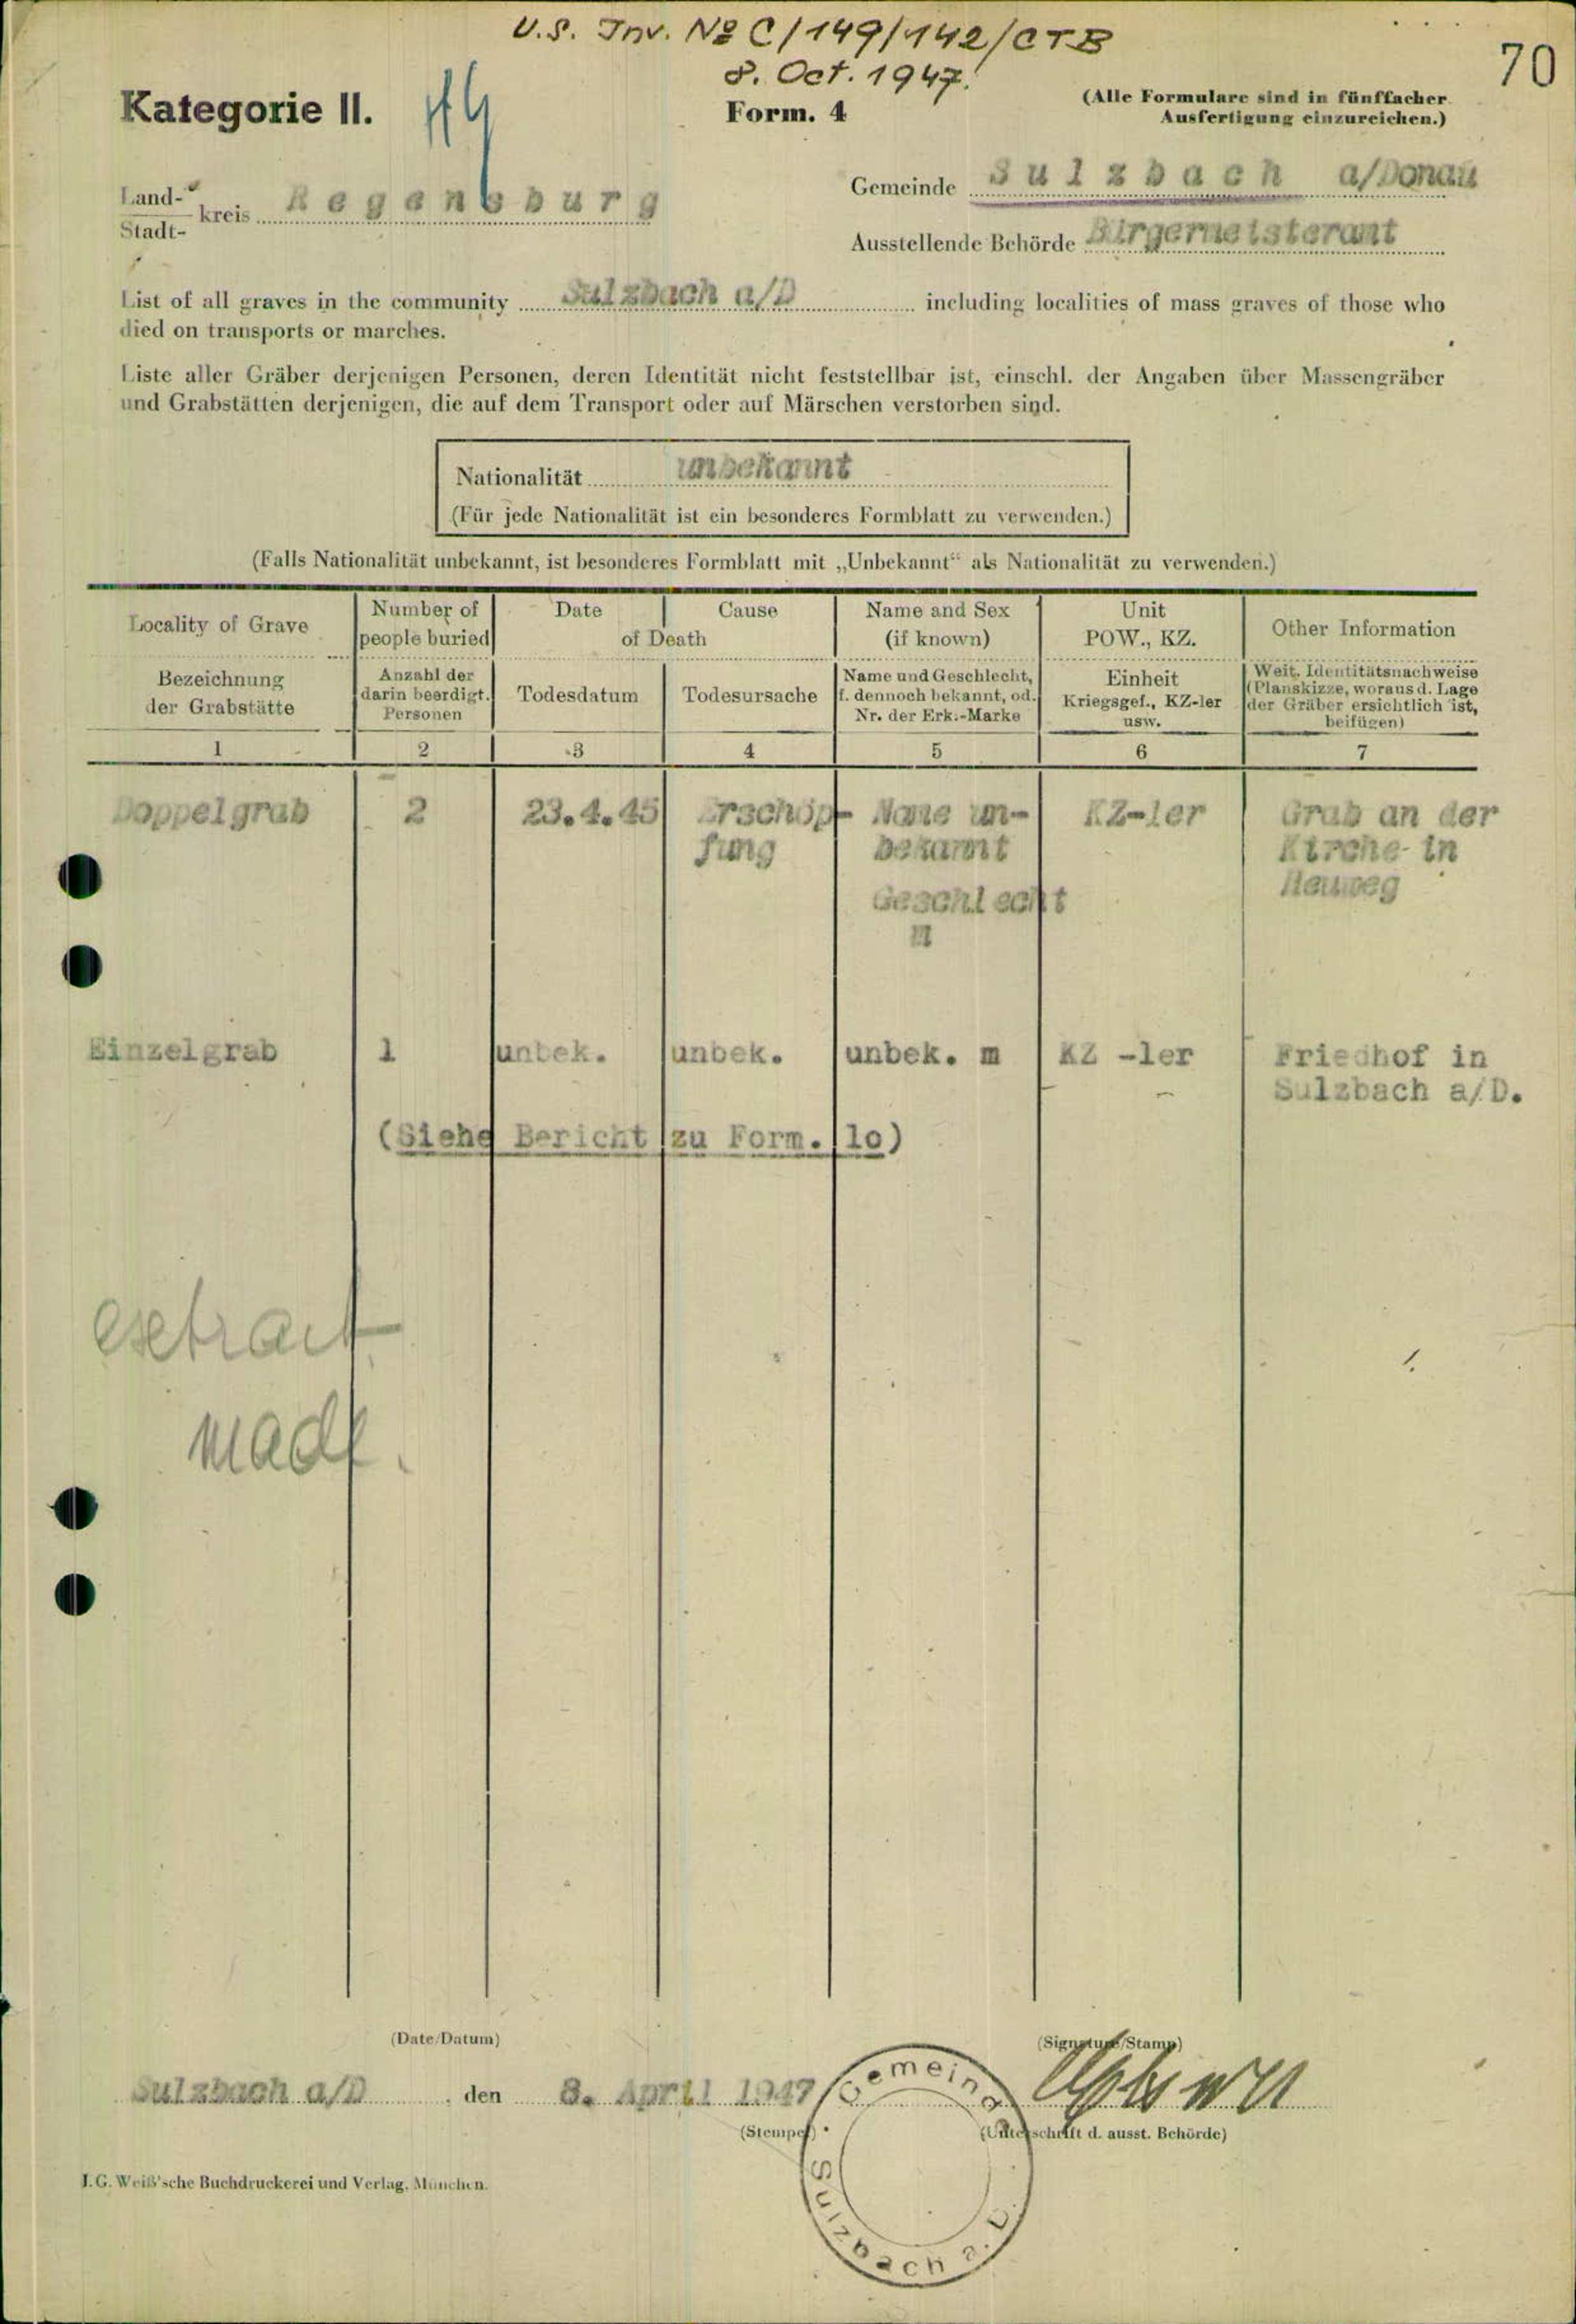 U.S. Inv. No C/149/142/CTB
8. Oct. 1947.
70
Kategorie II.
Form. 4
(Alle Formulare sind in fünffacher
Ausfertigung einzureichen.)
Land-
Stadt- kreis Regensburg
Gemeinde Sulzbach a/Donau
Ausstellende Behörde Bürgermeisteramt
List of all graves in the community Sulzbach a/D including localities of mass graves of those who
died on transports or marches.
Liste aller Gräber derjenigen Personen, deren Identität nicht feststellbar ist, einschl. der Angaben über Massengräber
und Grabstätten derjenigen, die auf dem Transport oder auf Märschen verstorben sind.
Nationalität unbekannt
(Für jede Nationalität ist ein besonderes Formblatt zu verwenden.)
(Falls Nationalität unbekannt, ist besonderes Formblatt mit „Unbekannt“ als Nationalität zu verwenden.)
Locality of Grave
Number of
people buried
Date Cause
of Death
Name and Sex
(if known)
Unit
POW., KZ.
Other Information
Bezeichnung
der Grabstätte
Anzahl der
darin beerdigt.
Personen
Todesdatum
Todesursache
Name und Geschlecht,
f. dennoch bekannt, od.
Nr. der Erk.-Marke
Einheit
Kriegsgef., KZ-ler
usw.
Weit. Identitätsnachweise
(Planskizze, woraus d. Lage
der Gräber ersichtlich ist,
beifügen)
1 2 3 4 5 6 7
Doppelgrab 2 23.4.45 Erschöp- Name un- KZ-ler Grab an der
fung bekannt Kirche in
Geschlecht Heuweg
m
Einzelgrab 1 unbek. unbek. unbek. m KZ -ler Friedhof in
Sulzbach a/D.
(Siehe Bericht zu Form. lo)
extract
made.
(Date/Datum)
(Signature/Stamp)
Sulzbach a/D , den 8. April 1947
(Stempel)
(Unterschrift d. ausst. Behörde)
Gemeinde
Sulzbach a. D.
J. G. Weiß'sche Buchdruckerei und Verlag, München.